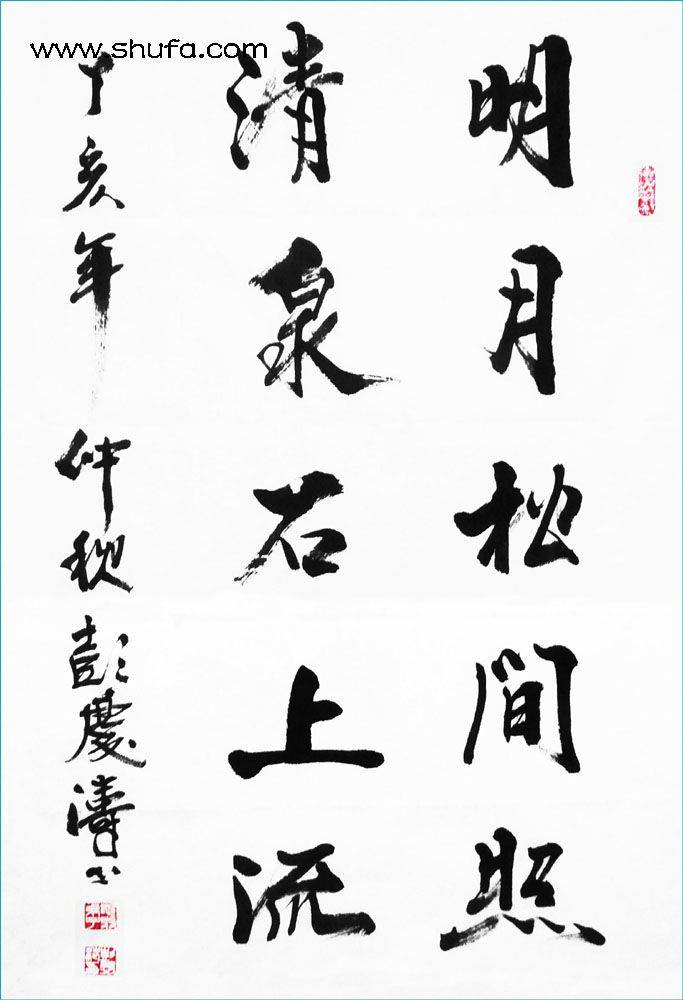 www.shufa.com
明月松間照
清泉石上流
丁亥年仲秋彭慶濤书